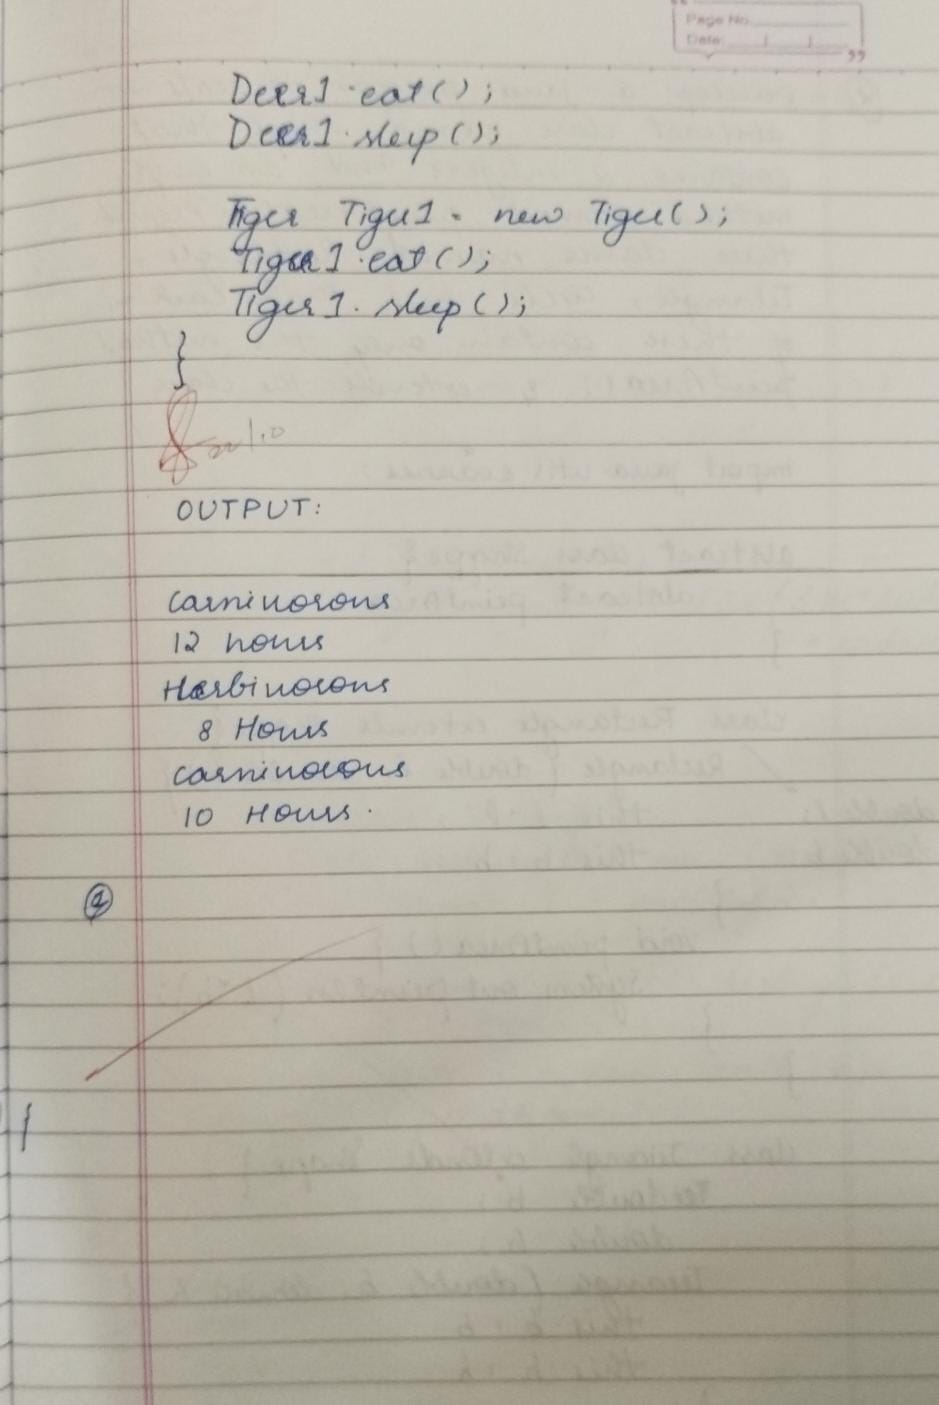 Page No.
Date:
Deer1.eat();
Deer1.sleep();
Tiger Tiger1 = new Tiger();
Tiger1.eat();
Tiger1.sleep();
}
OUTPUT:
Carnivorous
12 hours
Herbivorous
8 Hours
Carnivorous
10 Hours.